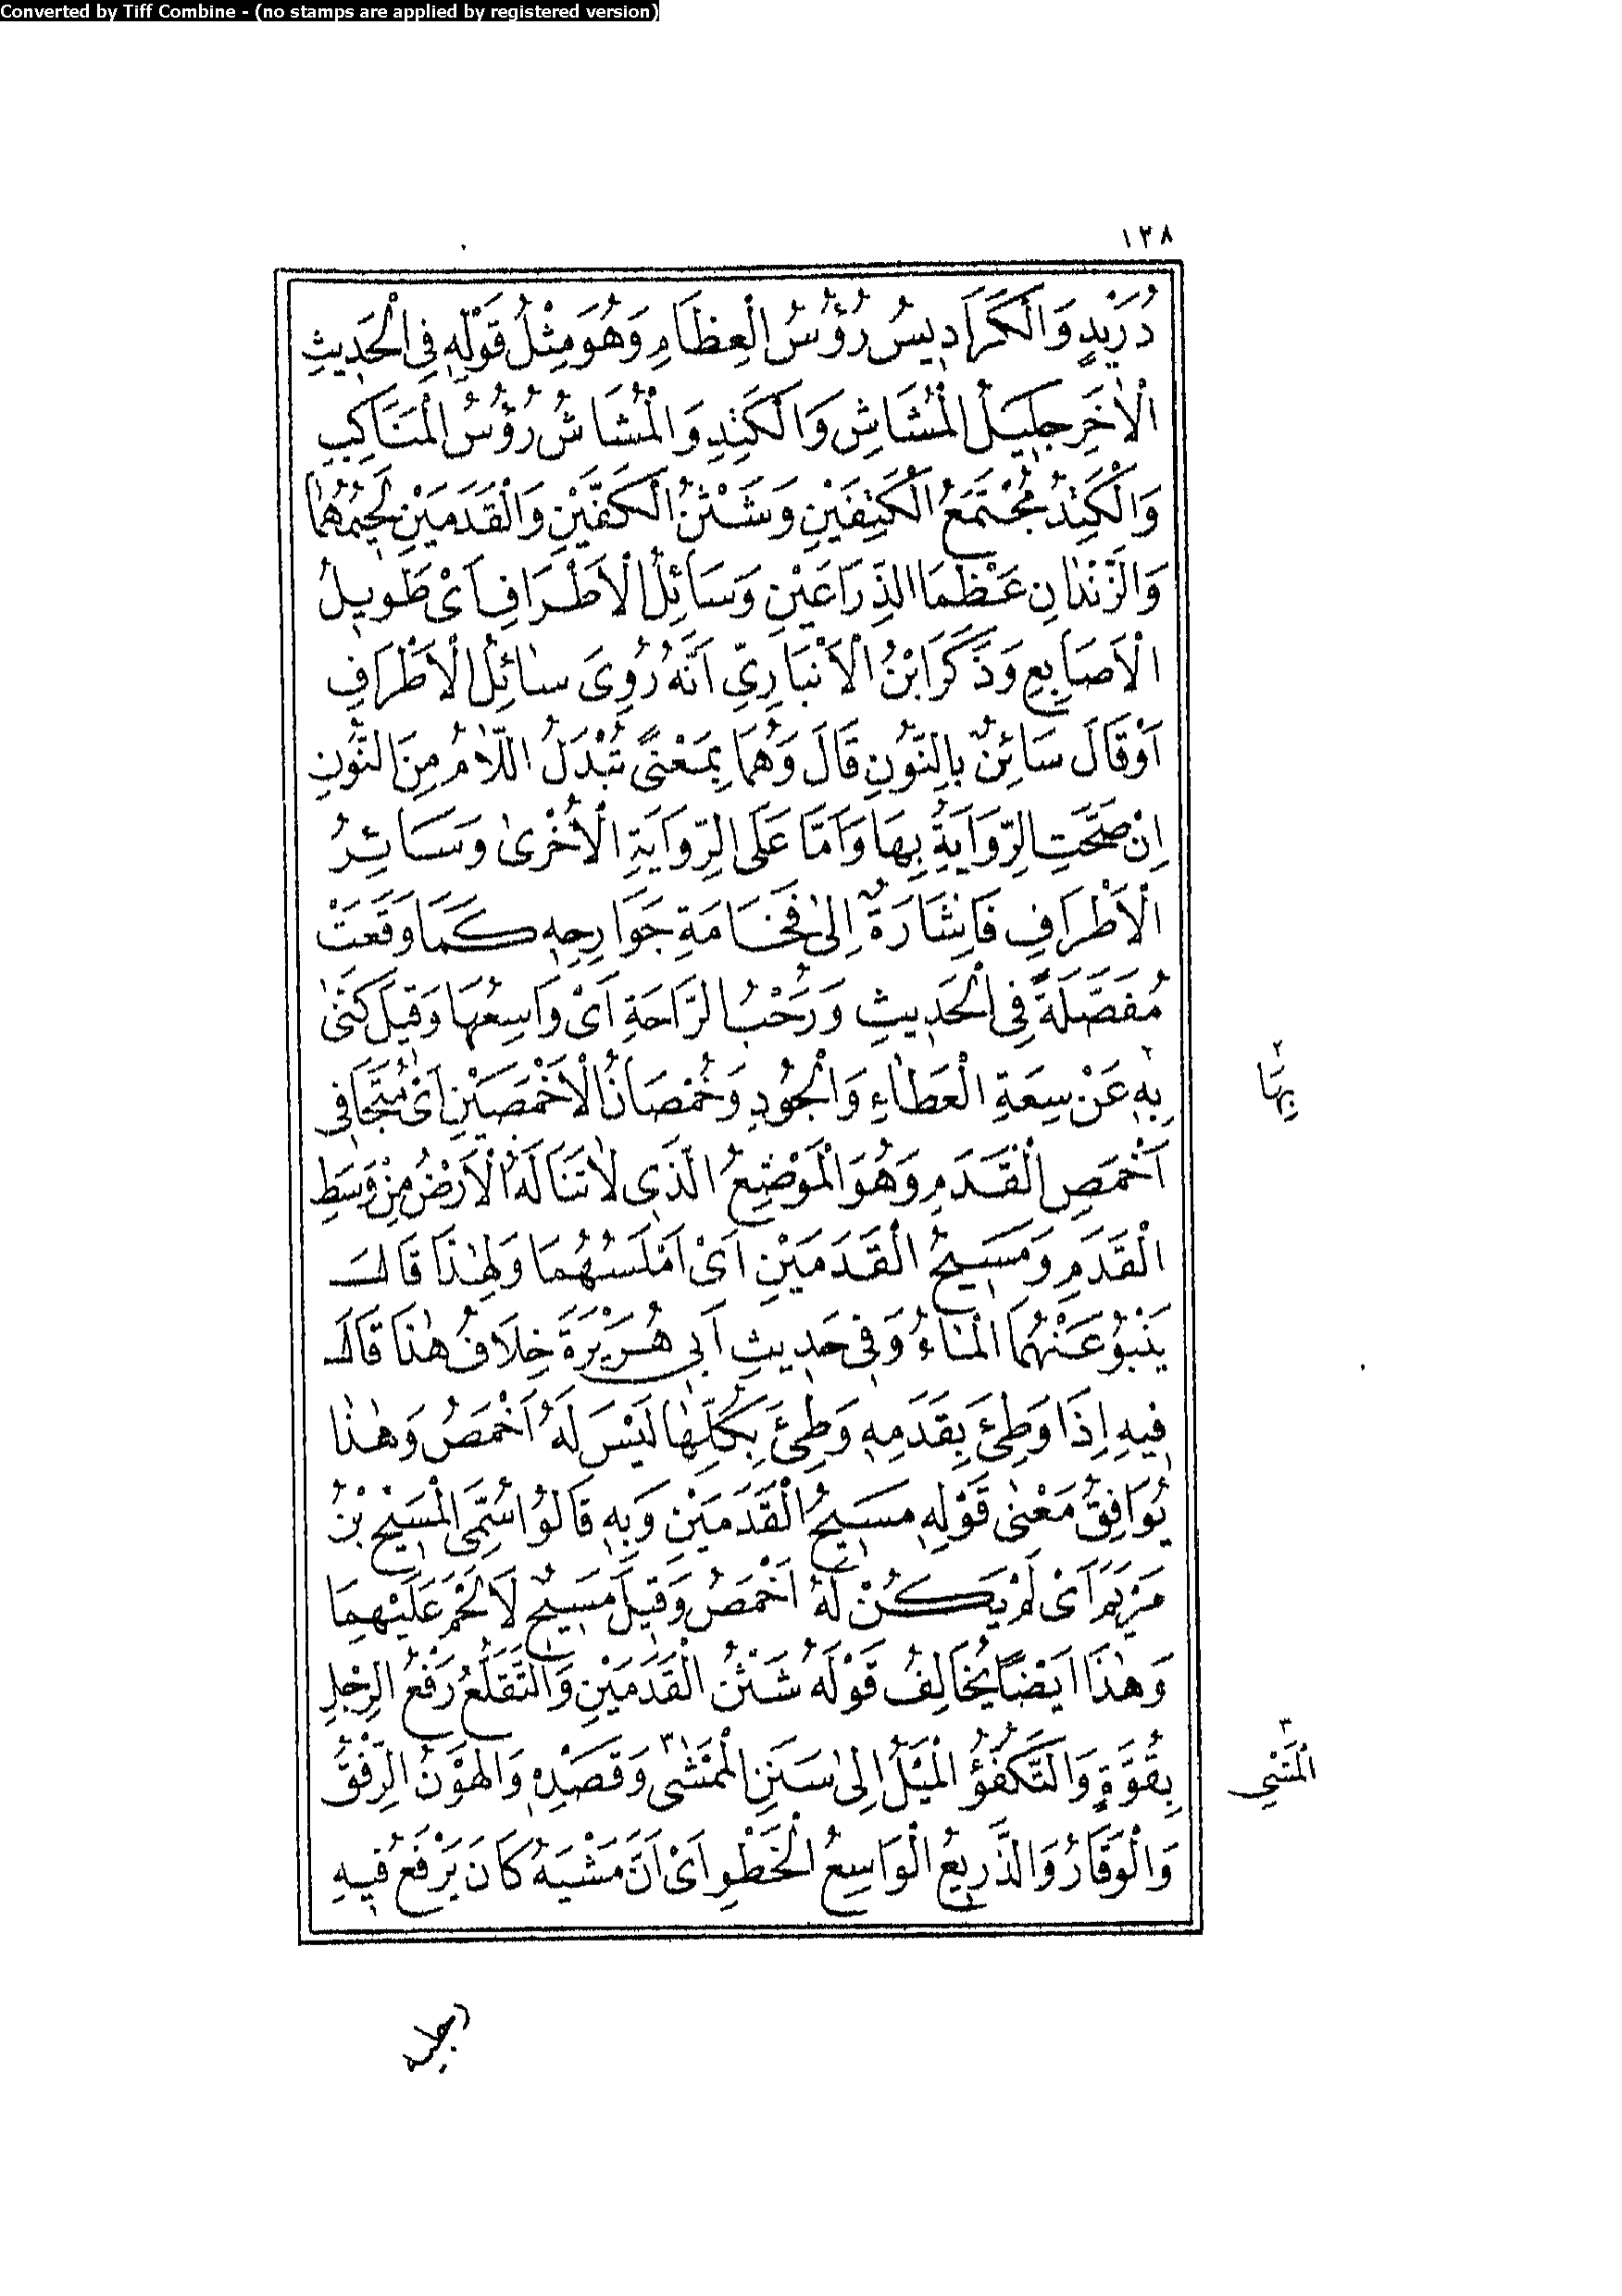 Converted by Tiff Combine - (no stamps are applied by registered version)
١٢٨
دُرَيْدٍ وَالْكَرَادِيسُ رُؤُسُ الْعِظَامِ وَهُوَ مِثْلُ قَوْلِهِ فِي الْحَدِيثِ
الْاٰخَرِ جَلِيلُ الْمُشَاشِ وَالْكَتَدِ وَالْمُشَاشُ رُؤُسُ الْمَنَاكِبِ
وَالْكَتَدُ مُجْتَمَعُ الْكَتِفَيْنِ وَشَثْنُ الْكَفَّيْنِ وَالْقَدَمَيْنِ لَحِيمُهُمَا
وَالزَّنْدَانِ عَظْمَا الذِّرَاعَيْنِ وَسَائِلُ الْاَطْرَافِ اَىْ طَوِيلُ
الْاَصَابِعِ وَذَكَرَ ابْنُ الْاَنْبَارِىِّ اَنَّهُ رُوِىَ سَائِلُ الْاَطْرَافِ
اَوْ قَالَ سَائِنٌ بِالنُّونِ قَالَ وَهُمَا بِمَعْنًى تُبْدَلُ اللَّامُ مِنَ النُّونِ
اِنْ صَحَّتِ الرِّوَايَةُ بِهَا وَاَمَّا عَلَى الرِّوَايَةِ الْاُخْرٰى وَسَائِرُ
الْاَطْرَافِ فَاِشَارَةٌ اِلٰى فَخَامَةِ جَوَارِحِهِ كَمَا وَقَعَتْ
مُفَصَّلَةً فِى الْحَدِيثِ وَرَحْبُ الرَّاحَةِ اَىْ وَاسِعُهَا وَقِيلَ كَنٰى
بِهِ٢ عَنْ سِعَةِ الْعَطَاءِ وَالْجُودِ وَخُمْصَانُ الْاَخْمَصَيْنِ اَىْ مُتَجَافِى
٢ بِهَا
اَخْمَصِ الْقَدَمِ وَهُوَ الْمَوْضِعُ الَّذِى لَا تَنَالُهُ الْاَرْضُ مِنْ وَسَطِ
الْقَدَمِ وَمَسِيحُ الْقَدَمَيْنِ اَىْ اَمْلَسُهُمَا وَلِهٰذَا قَالَ
يَنْبُوُ عَنْهُمَا الْمَاءُ وَفِى حَدِيثِ اَبِى هُرَيْرَةَ خِلَافُ هٰذَا قَالَ
فِيهِ اِذَا وَطِئَ بِقَدَمِهِ وَطِئَ بِكُلِّهَا لَيْسَ لَهُ اَخْمَصُ وَهٰذَا
يُوَافِقُ مَعْنٰى قَوْلِهِ مَسِيحُ الْقَدَمَيْنِ وَبِهِ قَالُوا سُمِّىَ الْمَسِيحُ بْنُ
مَرْيَمَ اَىْ لَمْ يَكُنْ لَهُ اَخْمَصُ وَقِيلَ مَسِيحٌ لَا لَحْمَ عَلَيْهِمَا
وَهٰذَا اَيْضًا يُخَالِفُ قَوْلَهُ شَثْنُ الْقَدَمَيْنِ وَالتَّقَلُّعُ رَفْعُ الرِّجْلِ
بِقُوَّةٍ وَالتَّكَفُّؤُ الْمَيْلُ اِلٰى سَنَنِ الْمَمْشٰى٣ وَقَصْدِهِ وَالْهَوْنُ الرِّفْقُ
٣ الْمَشْىِ
وَالْوَقَارُ وَالذَّرِيعُ الْوَاسِعُ الْخَطْوِ اَىْ اَنَّ مَشْيَهُ كَانَ يَرْفَعُ فِيهِ